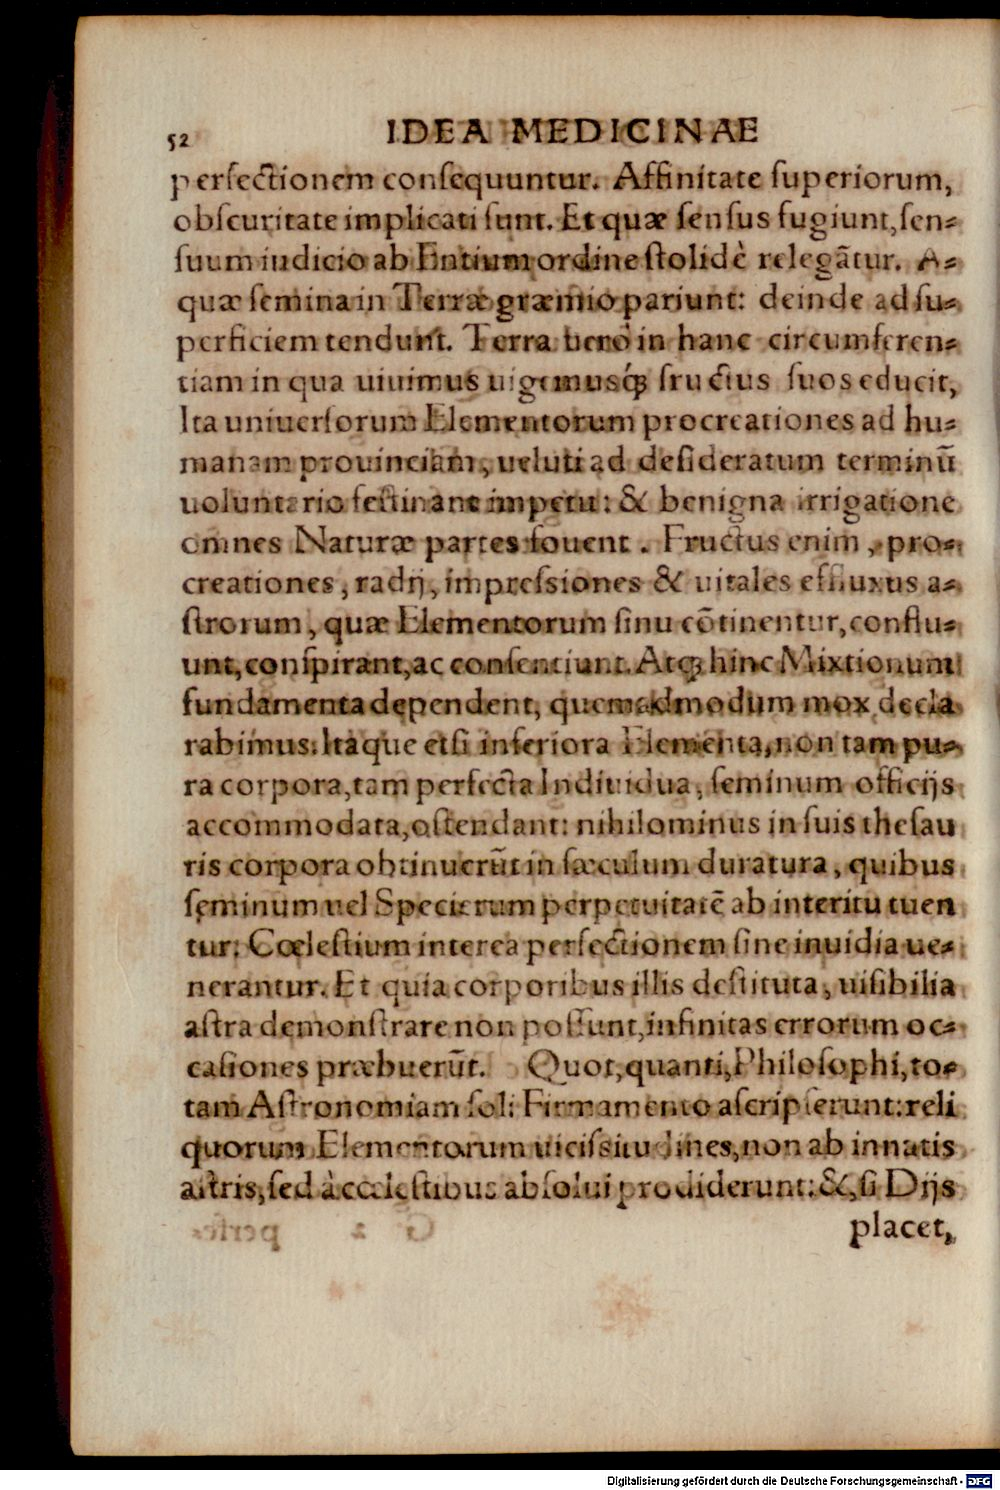 52 IDEA MEDICINAE
perſectionem conſequuntur. Affinitate ſuperiorum,
obſcuritate implicati ſunt. Et quæ ſenſus fugiunt, ſen-
ſuum iudicio ab Entium ordine ſtolidè relegãtur. A-
quæ ſemina in Terræ græmio pariunt: deinde ad ſu-
perficiem tendunt. Terra uerò in hanc circumferen-
tiam in qua uiuimus uigemusq́; fructus ſuos educit,
Ita uniuerſorum Elementorum procreationes ad hu-
manam prouinciam, ueluti ad deſideratum terminũ
uoluntario feſtinant impetu: & benigna irrigatione
omnes Naturæ partes fouent. Fructus enim, pro-
creationes, radij, impreſsiones & uitales effluxus a-
ſtrorum, quæ Elementorum ſinu cõtinentur, conflu-
unt, conſpirant, ac conſentiunt. Atq; hinc Mixtionum
fundamenta dependent, quemadmodum mox decla
rabimus. Itaque etſi inferiora Elementa, non tam pu-
ra corpora, tam perfecta Indiuidua, ſeminum officijs
accommodata, oſtendant: nihilominus in ſuis theſau
ris corpora obtinuerũt in ſæculum duratura, quibus
ſeminum uel Specierum perpetuitatẽ ab interitu tuen
tur: Cœleſtium interea perfectionem ſine inuidia ue-
nerantur. Et quia corporibus illis deſtituta, uiſibilia
aſtra demonſtrare non poſſunt, infinitas errorum oc-
caſiones præbuerũt. Quot, quanti, Philoſophi, to-
tam Aſtronomiam ſoli Firmamento aſcripſerunt: reli
quorum Elementorum uiciſsitudines, non ab innatis
aſtris, ſed à cœleſtibus abſolui prodiderunt: &, ſi Dijs
placet,
Digitalisierung gefördert durch die Deutsche Forschungsgemeinschaft - DFG